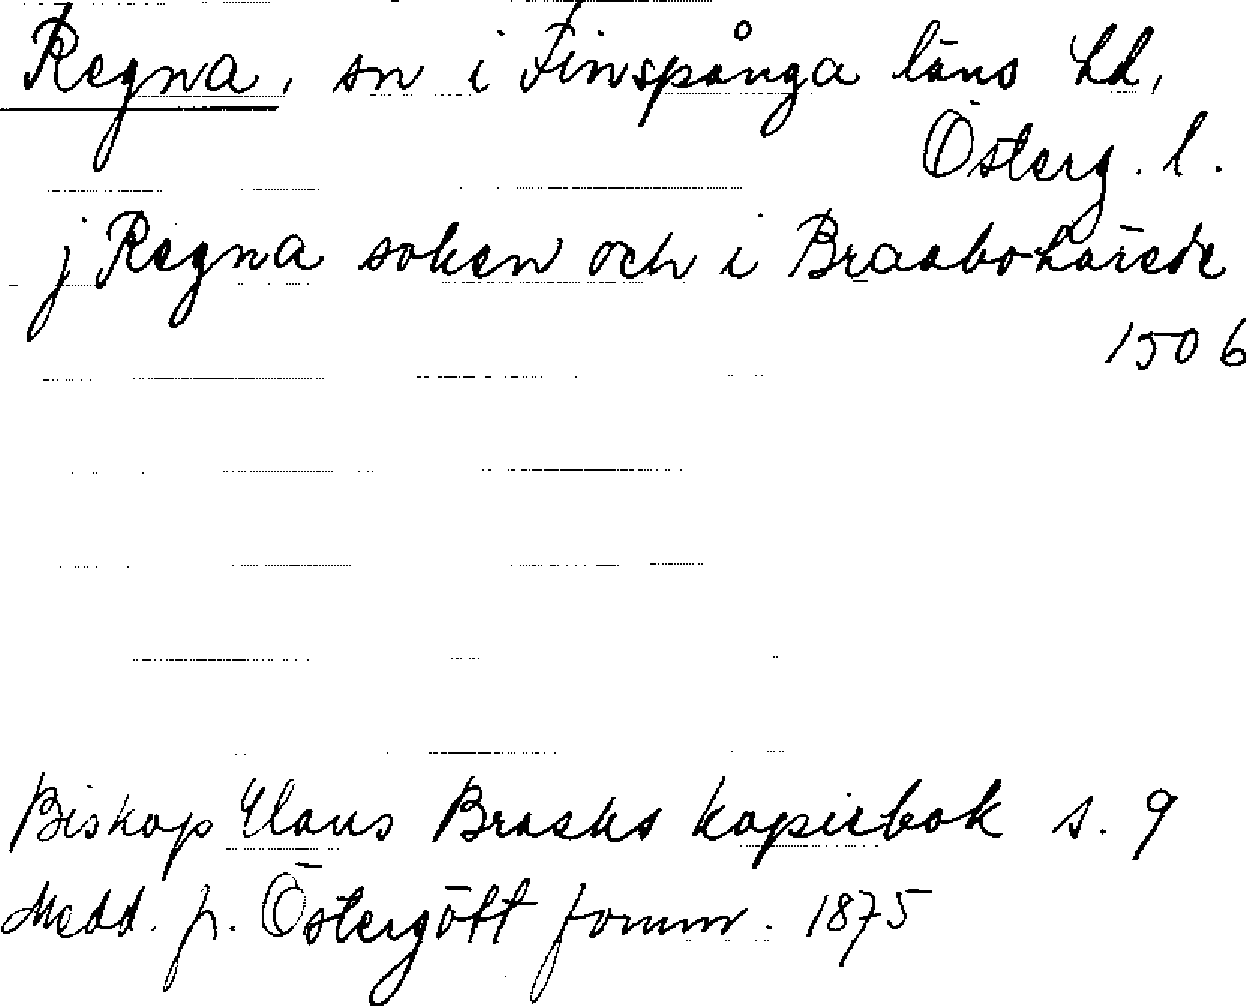 Regna, sn i Finspånga läns hd,
Österg. l.
j Regna soken och i Braabo härede
1506
Biskop Hans Brasks kopiebok s. 9
Medd. fr. Östergött fornm. 1875